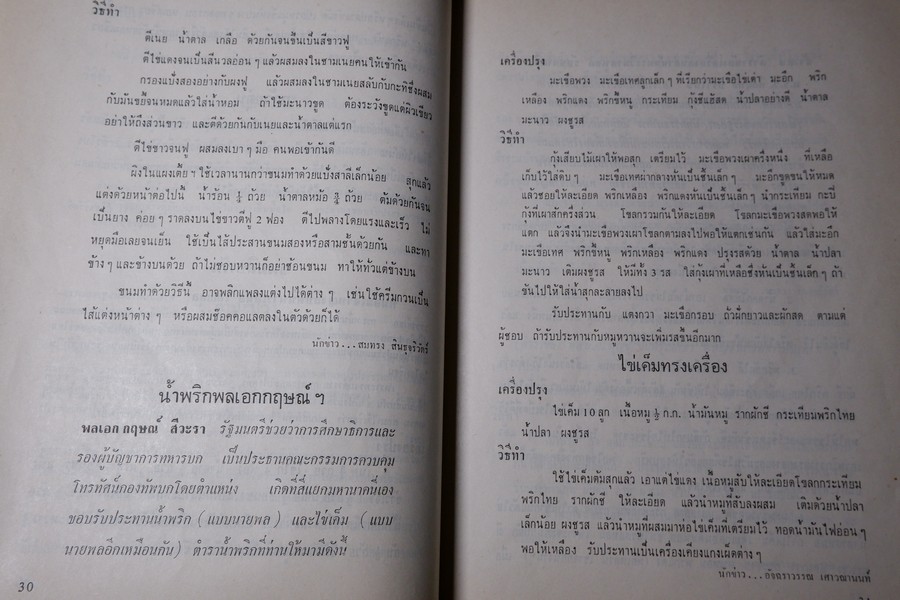 วิธีทำ
ตีเนย น้ำตาล เกลือ ด้วยกันจนขึ้นเป็นสีขาวฟู
ตีไข่แดงจนเป็นสีนวลอ่อน ๆ แล้วผสมลงในชามเนยคนให้เข้ากัน
กรองแป้งสองอย่างกับผงฟู แล้วผสมลงในชามเนยสลับกับกะทิซึ่งผสม
กับมันขยี้จนหมดแล้วใส่น้ำหอม ถ้าใช้มะนาวขูด ต้องระวังขูดแต่ผิวเขียว
อย่าให้ถึงส่วนขาว และตีด้วยกันกับเนยและน้ำตาลแต่แรก
ตีไข่ขาวจนฟู ผสมลงเบา ๆ มือ คนพอเข้ากันดี
ผิงในแผงเตี้ย ฯ ใช้เวลานานกว่าขนมทำด้วยแป้งสาลีเล็กน้อย สุกแล้ว
แต่งด้วยหน้าต่อไปนี้ น้ำร้อน ¼ ถ้วย น้ำตาลหม้อ ถ้วย ต้มด้วยกันจน
เป็นยาง ค่อย ๆ ราดลงบนไข่ขาวตีฟู 2 ฟอง ตีไปพลางโดยแรงและเร็ว ไม่
หยุดมือเลยจนเย็น ใช้เป็นไส้ประสานขนมสองหรือสามชั้นด้วยกัน และทา
ข้าง ๆ และข้างบนด้วย ถ้าไม่ชอบหวานก็อย่าซ้อนขนม ทาให้ทั่วแต่ข้างบน
ขนมทำด้วยวิธีนี้ อาจพลิกแพลงแต่งไปได้ต่าง ๆ เช่นใช้ครีมกวนเป็น
ไส้แต่งหน้าต่าง ๆ หรือผสมช็อคคอแลตลงในตัวด้วยก็ได้
นักข่าว...สมทรง สินธุจริวัตร์
น้ำพริกพลเอกกฤษณ์ ฯ
พลเอก กฤษณ์ สีวะรา รัฐมนตรีช่วยว่าการศึกษาธิการและ
รองผู้บัญชาการทหารบก เป็นประธานคณะกรรมการควบคุม
โทรทัศน์กองทัพบกโดยตำแหน่ง เกิดที่สี่แยกมหานาคนี่เอง
ชอบรับประทานน้ำพริก (แบบนายพล) และไข่เค็ม (แบบ
นายพลอีกเหมือนกัน) ตำราน้ำพริกที่ท่านให้มามีดังนี้
30
เครื่องปรุง
มะเขือพวง มะเขือเทศลูกเล็ก ๆ ที่เรียกว่ามะเขือไข่เต่า มะอึก พริก
เหลือง พริกแดง พริกขี้หนู กระเทียม กุ้งชีแฮ้สด น้ำปลาอย่างดี น้ำตาล
มะนาว ผงชูรส
วิธีทำ
กุ้งเสียบไม้เผาให้พอสุก เตรียมไว้ มะเขือพวงเผาครึ่งหนึ่ง ที่เหลือ
เก็บไว้ใส่ดิบ ๆ มะเขือเทศผ่ากลางหั่นเป็นชิ้นเล็ก ๆ มะอึกขูดขนให้หมด
แล้วซอยให้ละเอียด พริกเหลือง พริกแดงหั่นเป็นชิ้นเล็ก ๆ นำกระเทียม กะปิ
กุ้งที่เผาสักครึ่งส่วน โขลกรวมกันให้ละเอียด โขลกมะเขือพวงสดพอให้
แตก แล้วจึงนำมะเขือพวงเผาโขลกตามลงไปพอให้แตกเช่นกัน แล้วใส่มะอึก
มะเขือเทศ พริกขี้หนู พริกเหลือง พริกแดง ปรุงรสด้วย น้ำตาล น้ำปลา
มะนาว เติมผงชูรส ให้มีทั้ง 3 รส ใส่กุ้งเผาที่เหลือซึ่งหั่นเป็นชิ้นเล็ก ๆ ถ้า
ข้นไปให้ใส่น้ำสุกละลายลงไป
รับประทานกับ แตงกวา มะเขือกรอบ ถั่วฝักยาวและผักสด ตามแต่
ผู้ชอบ ถ้ารับประทานกับหมูหวานจะเพิ่มรสขึ้นอีกมาก
ไข่เค็มทรงเครื่อง
เครื่องปรุง
ไข่เค็ม 10 ลูก เนื้อหมู ½ ก.ก. น้ำมันหมู รากผักชี กระเทียมพริกไทย
น้ำปลา ผงชูรส
วิธีทำ
ใช้ไข่เค็มต้มสุกแล้ว เอาแต่ไข่แดง เนื้อหมูสับให้ละเอียดโขลกกระเทียม
พริกไทย รากผักชี ให้ละเอียด แล้วนำหมูที่สับลงผสม เติมด้วยน้ำปลา
เล็กน้อย ผงชูรส แล้วนำหมูที่ผสมมาห่อไข่เค็มที่เตรียมไว้ ทอดน้ำมันไฟอ่อน ๆ
พอให้เหลือง รับประทานเป็นเครื่องเคียงแกงเผ็ดต่าง ๆ
นักข่าว...ถัจฉราวรรณ เศาวฌานนท์